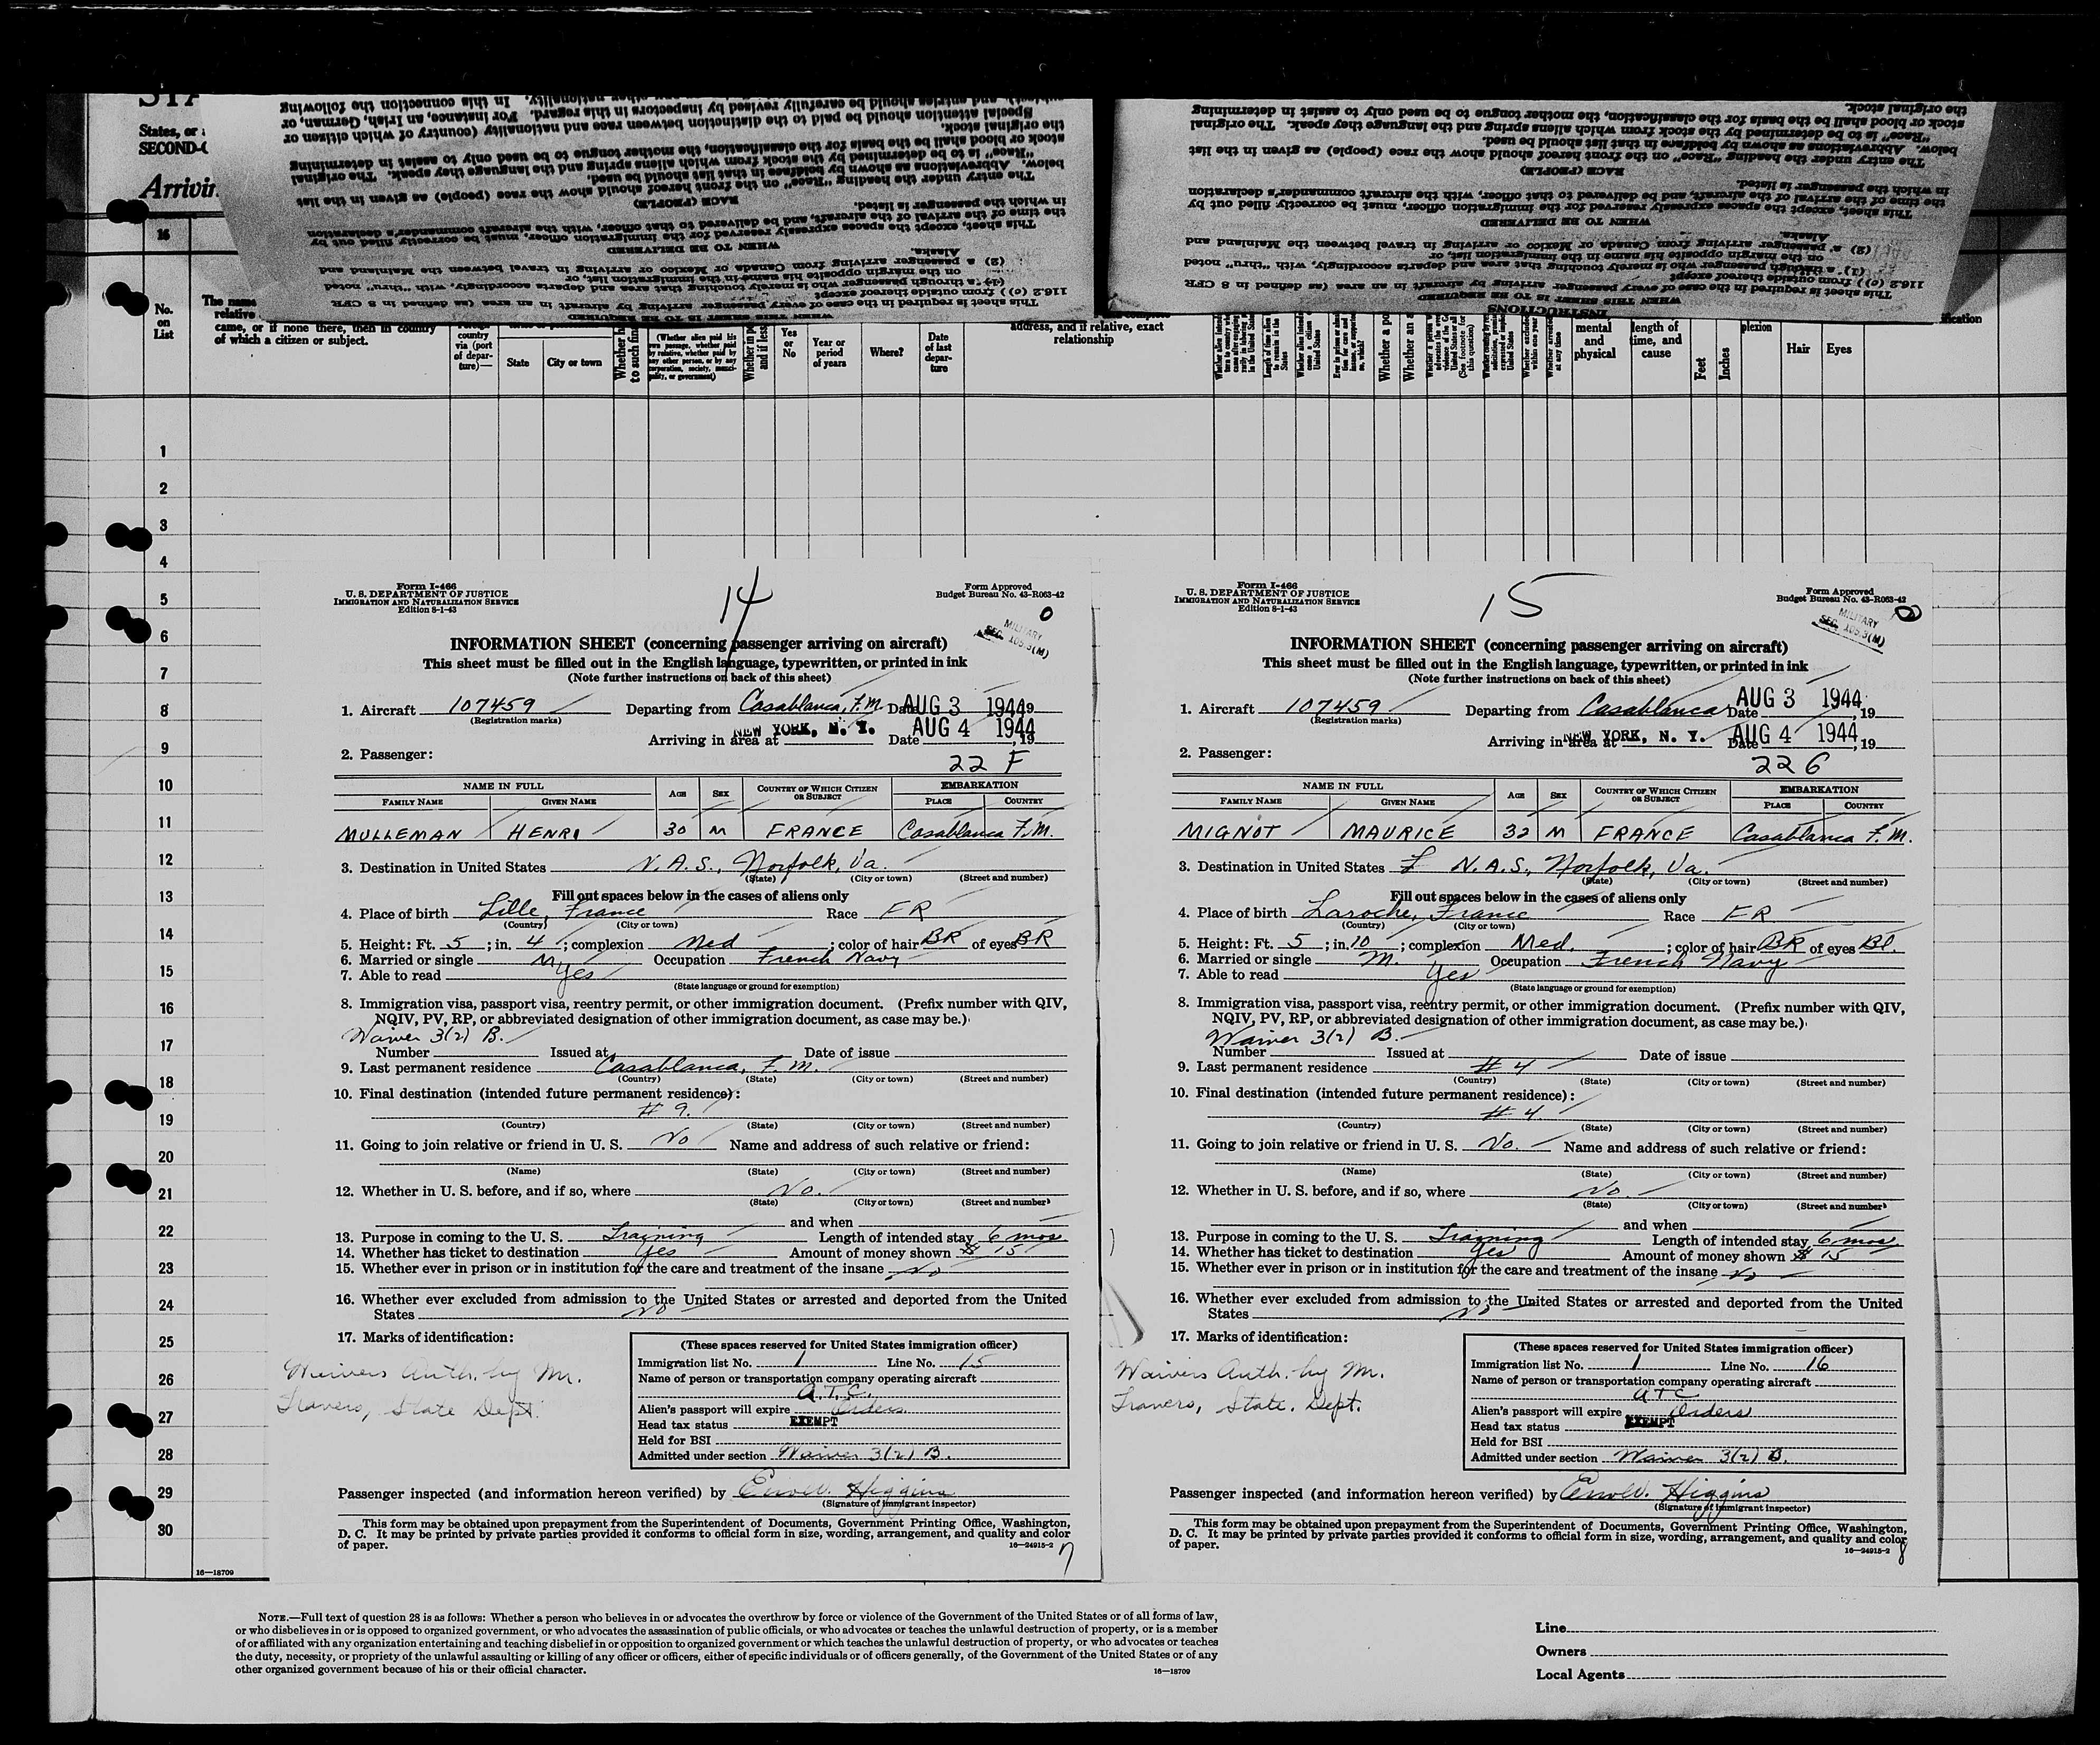 States, or
SECOND-C
Arrivin
No.
on
List
The name
relative
came, or if none there, then in country
of which a citizen or subject.
country
via (port
of depar-
ture)—
State
City or town
(Whether alien paid his
own passage, whether paid
by relative, whether paid by
any other person, or by any
corporation, society, munici-
pality, or government)
Yes
or
No
Year or
period
of years
Where?
Date
of last
depar-
ture
address, and if relative, exact
relationship
mental
and
physical
length of
time, and
cause
Feet
Inches
plexion
Hair
Eyes
INSTRUCTIONS
WHEN THIS SHEET IS TO BE REQUIRED
This sheet is required in the case of every passenger arriving by aircraft in an area (as defined in 8 CFR
116.2 (c)) from outside thereof except
(1) a through passenger who is merely touching that area and departs accordingly, with "thru" noted
on the margin opposite his name in the immigration list, or
(2) a passenger arriving from Canada or Mexico or arriving in travel between the Mainland and
Alaska.
WHEN TO BE DELIVERED
This sheet, except the spaces expressly reserved for the immigration officer, must be correctly filled out by
the time of the arrival of the aircraft, and be delivered to that officer, with the aircraft commander's declaration
in which the passenger is listed.
RACE (PEOPLE)
The entry under the heading "Race" on the front hereof should show the race (people) as given in the list
below. Abbreviations as shown by boldface in that list should be used.
"Race" is to be determined by the stock from which aliens spring and the language they speak. The original
stock or blood shall be the basis for the classification, the mother tongue to be used only to assist in determining
the original stock.
Special attention should be paid to the distinction between race and nationality (country of which citizen or
subject), and entries should be carefully revised by inspectors in this regard. For instance, an Irish, German, or
1
2
3
4
5
6
7
8
9
10
11
12
13
14
15
16
17
18
19
20
21
22
23
24
25
26
27
28
29
30
16—18709
Form I-466
U. S. DEPARTMENT OF JUSTICE
IMMIGRATION AND NATURALIZATION SERVICE
Edition 8-1-43
14
Form Approved
Budget Bureau No. 43-R063-42
0
MILITARY
SEC. 105.3(M)
INFORMATION SHEET (concerning passenger arriving on aircraft)
This sheet must be filled out in the English language, typewritten, or printed in ink
(Note further instructions on back of this sheet)
1. Aircraft 107459 Departing from Casablanca, F.M. Date AUG 3 1944
(Registration marks)
Arriving in area at NEW YORK, N. Y. Date AUG 4 1944, 19
2. Passenger: 22 F
NAME IN FULL AGE SEX COUNTRY OF WHICH CITIZEN OR SUBJECT EMBARKATION
FAMILY NAME GIVEN NAME PLACE COUNTRY
MULLEMAN HENRI 30 M FRANCE Casablanca F.M.
3. Destination in United States N.A.S., Norfolk, Va.
(State) (City or town) (Street and number)
Fill out spaces below in the cases of aliens only
4. Place of birth Lille, France Race FR
(Country) (City or town)
5. Height: Ft. 5; in. 4; complexion Med; color of hair BR of eyes BR
6. Married or single M Occupation French Navy
7. Able to read yes
(State language or ground for exemption)
8. Immigration visa, passport visa, reentry permit, or other immigration document. (Prefix number with QIV,
NQIV, PV, RP, or abbreviated designation of other immigration document, as case may be.)
Waiver 3(2) B.
Number Issued at Date of issue
9. Last permanent residence Casablanca, F.M.
(Country) (State) (City or town) (Street and number)
10. Final destination (intended future permanent residence):
# 9.
(Country) (State) (City or town) (Street and number)
11. Going to join relative or friend in U. S. No Name and address of such relative or friend:
(Name) (State) (City or town) (Street and number)
12. Whether in U. S. before, and if so, where No.
(State) (City or town) (Street and number)
and when
13. Purpose in coming to the U. S. Training Length of intended stay 6 mos
14. Whether has ticket to destination Yes Amount of money shown $ 15
15. Whether ever in prison or in institution for the care and treatment of the insane No
16. Whether ever excluded from admission to the United States or arrested and deported from the United
States No
17. Marks of identification:
Waivers Auth. by Mr.
Travers, State Dept.
(These spaces reserved for United States immigration officer)
Immigration list No. 1 Line No. 15
Name of person or transportation company operating aircraft
A.T.C.
Alien's passport will expire Orders
Head tax status EXEMPT
Held for BSI
Admitted under section Waiver 3(2) B.
Passenger inspected (and information hereon verified) by Higgins
(Signature of immigrant inspector)
This form may be obtained upon prepayment from the Superintendent of Documents, Government Printing Office, Washington,
D. C. It may be printed by private parties provided it conforms to official form in size, wording, arrangement, and quality and color
of paper.
16—24915-2
7
Form I-466
U. S. DEPARTMENT OF JUSTICE
IMMIGRATION AND NATURALIZATION SERVICE
Edition 8-1-43
15
Form Approved
Budget Bureau No. 43-R063-42
0
MILITARY
SEC. 105.3(M)
INFORMATION SHEET (concerning passenger arriving on aircraft)
This sheet must be filled out in the English language, typewritten, or printed in ink
(Note further instructions on back of this sheet)
1. Aircraft 107459 Departing from Casablanca Date AUG 3 1944, 19
(Registration marks)
Arriving in area at NEW YORK, N. Y. Date AUG 4 1944, 19
2. Passenger: 22 G
NAME IN FULL AGE SEX COUNTRY OF WHICH CITIZEN OR SUBJECT EMBARKATION
FAMILY NAME GIVEN NAME PLACE COUNTRY
MIGNOT MAURICE 32 M FRANCE Casablanca F.M.
3. Destination in United States N.A.S., Norfolk, Va.
(State) (City or town) (Street and number)
Fill out spaces below in the cases of aliens only
4. Place of birth Laroche, France Race FR
(Country) (City or town)
5. Height: Ft. 5; in. 10; complexion Med.; color of hair BR of eyes Bl.
6. Married or single M. Occupation French Navy
7. Able to read Yes
(State language or ground for exemption)
8. Immigration visa, passport visa, reentry permit, or other immigration document. (Prefix number with QIV,
NQIV, PV, RP, or abbreviated designation of other immigration document, as case may be.)
Waiver 3(2) B.
Number Issued at Date of issue
9. Last permanent residence # 4
(Country) (State) (City or town) (Street and number)
10. Final destination (intended future permanent residence):
# 4.
(Country) (State) (City or town) (Street and number)
11. Going to join relative or friend in U. S. No. Name and address of such relative or friend:
(Name) (State) (City or town) (Street and number)
12. Whether in U. S. before, and if so, where No.
(State) (City or town) (Street and number)
and when
13. Purpose in coming to the U. S. Training Length of intended stay 6 mos
14. Whether has ticket to destination Yes Amount of money shown $ 15
15. Whether ever in prison or in institution for the care and treatment of the insane No
16. Whether ever excluded from admission to the United States or arrested and deported from the United
States No
17. Marks of identification:
Waivers Auth. by Mr.
Travers, State. Dept.
(These spaces reserved for United States immigration officer)
Immigration list No. 1 Line No. 16
Name of person or transportation company operating aircraft
ATC
Alien's passport will expire Orders
Head tax status EXEMPT
Held for BSI
Admitted under section Waiver 3(2) B.
Passenger inspected (and information hereon verified) by Higgins
(Signature of immigrant inspector)
This form may be obtained upon prepayment from the Superintendent of Documents, Government Printing Office, Washington,
D. C. It may be printed by private parties provided it conforms to official form in size, wording, arrangement, and quality and color
of paper.
16—24915-2
8
NOTE.—Full text of question 28 is as follows: Whether a person who believes in or advocates the overthrow by force or violence of the Government of the United States or of all forms of law,
or who disbelieves in or is opposed to organized government, or who advocates the assassination of public officials, or who advocates or teaches the unlawful destruction of property, or is a member
of or affiliated with any organization entertaining and teaching disbelief in or opposition to organized government or which teaches the unlawful destruction of property, or who advocates or teaches
the duty, necessity, or propriety of the unlawful assaulting or killing of any officer or officers, either of specific individuals or of officers generally, of the Government of the United States or of any
other organized government because of his or their official character.
16—18709
Line
Owners
Local Agents